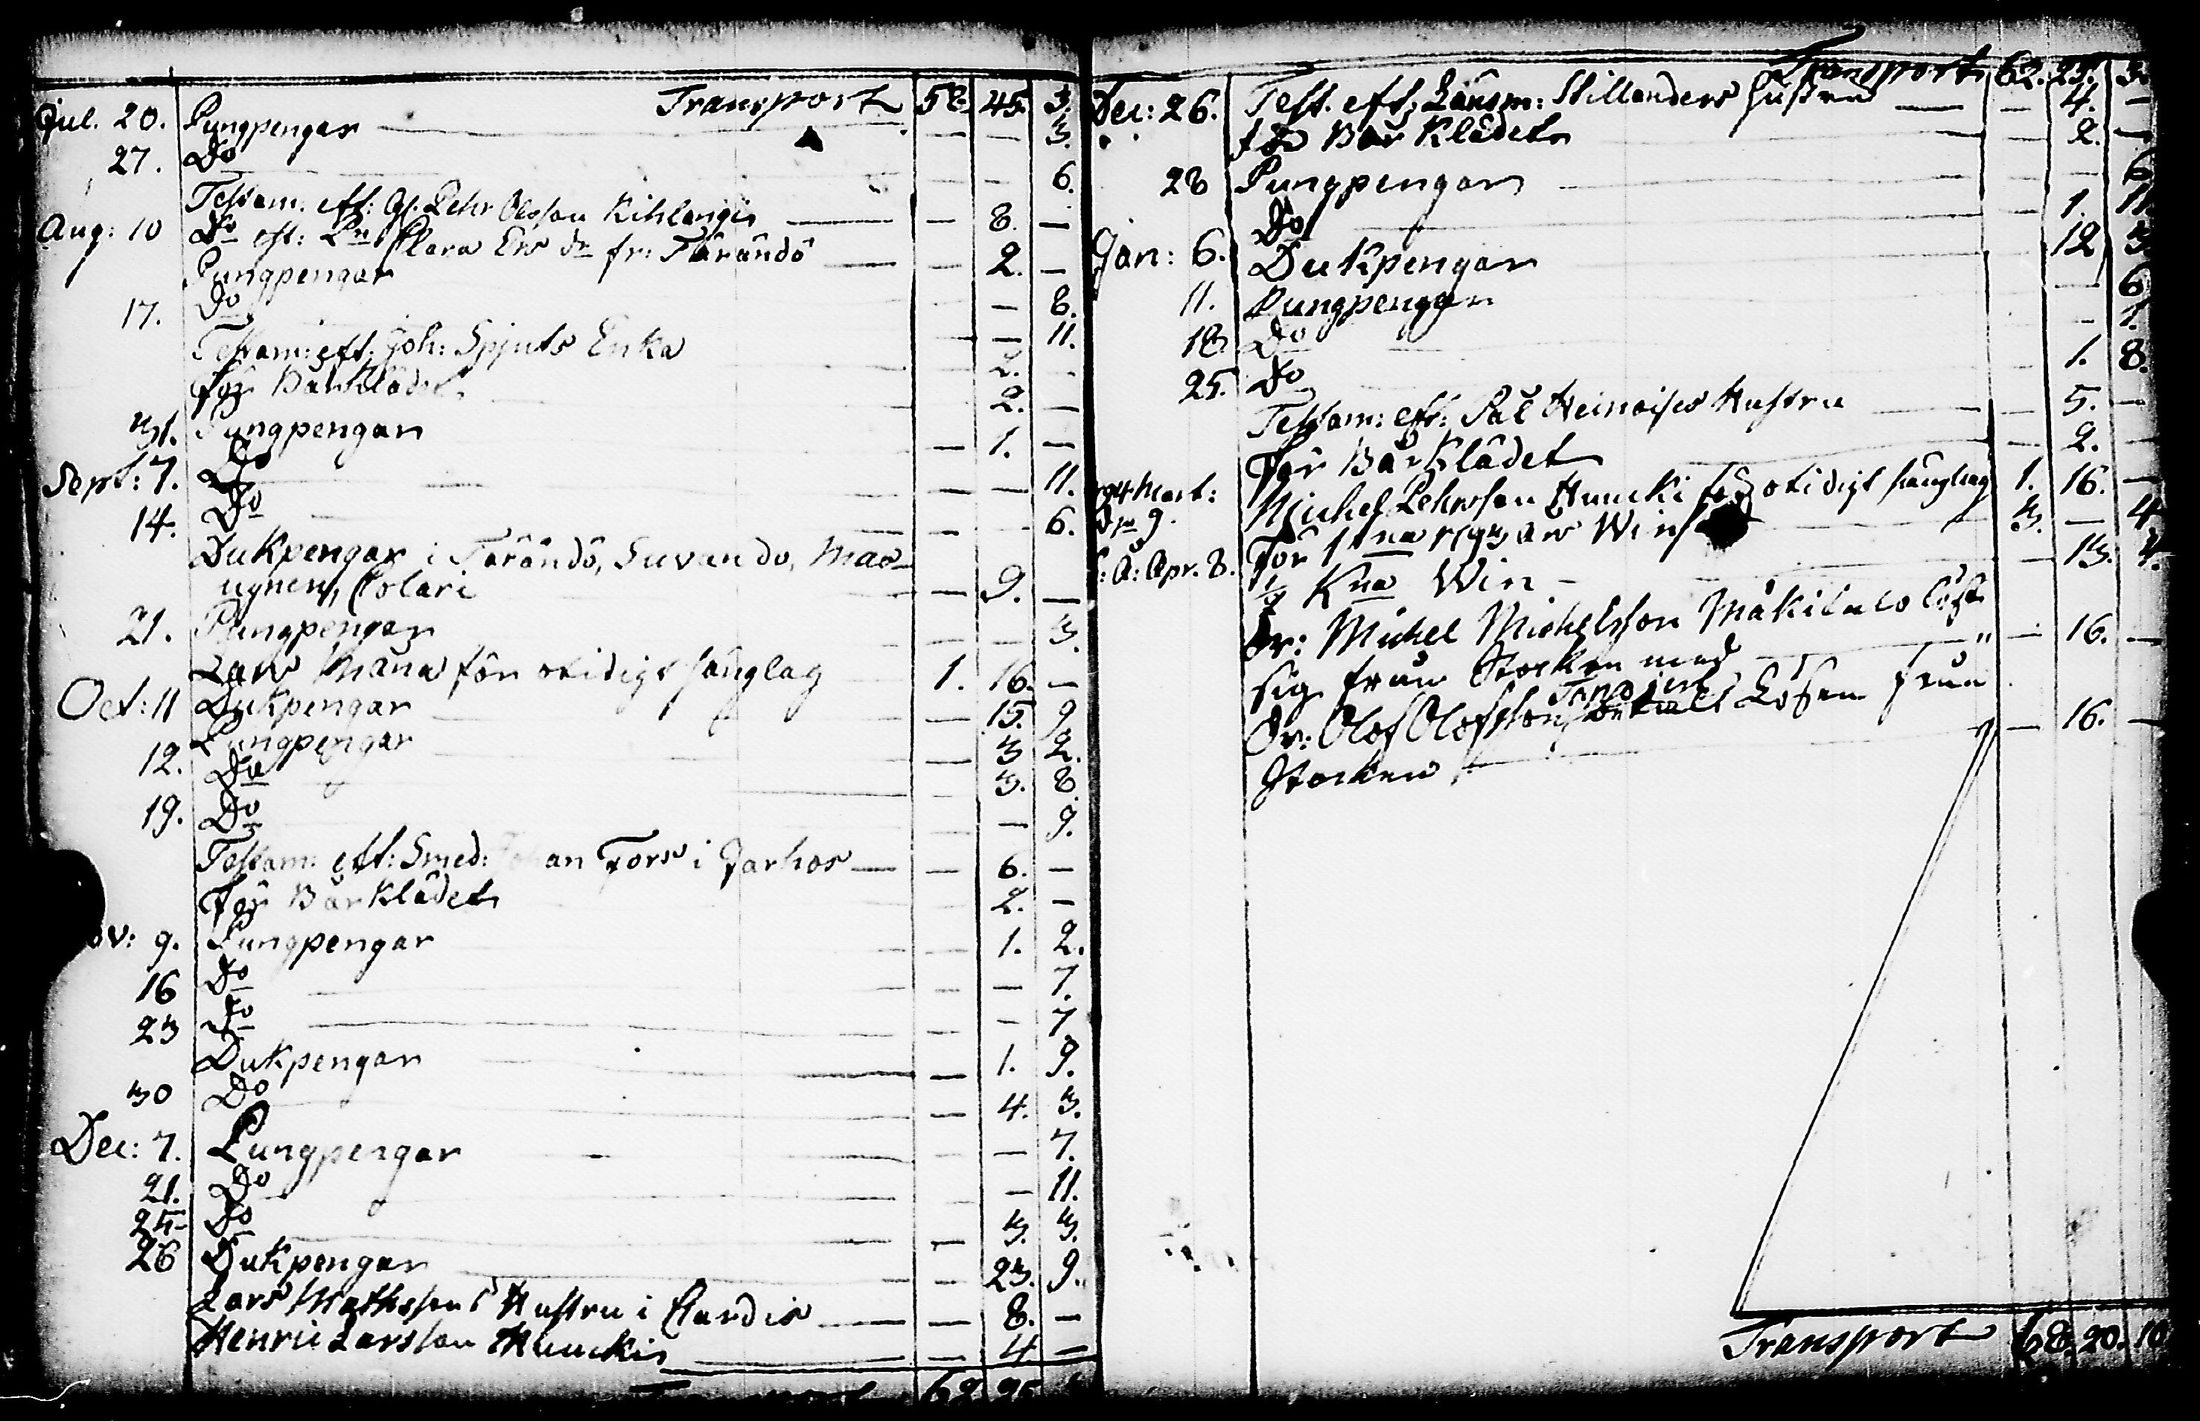 Transport 58. 45. 3.
Jul. 20. Pungpengar — — 3.
27. Do — — 6.
Testam. eft: Gl. Pehr Olsson Kihlangis — 8. —
Aug: 10 Do eft: Clara Ers dr fr: Tärändö — 2. —
Pungpengar — — 8.
17. Do — — 11.
Testam: eft: Joh: Spjuts Enka 2. —
för Bårklädet 2. —
31. Pungpengar — 1. —
Sept: 7. Do — — 11.
14. Do — — 6.
Dukpengar i Tärändö, Suvando, Mas-
ugnen, Colari — 9. —
21. Pungpengar — — 3.
Lars Mäna för otidigt sänglag 1. 16. —
Oct: 11 Dukpengar — 15. 9
12. Pungpengar — 3 2.
Do — 3. 8
19. Do — 9.
Testam: eft: Smed: Johan Fors i Jarhos — — 6. —
För Bårklädet 2. —
ov: 9. Pungpengar — 1. 2.
16 Do — — 7.
23 Do — — 7
Dukpengar — 1. 9.
30 Do — 4. 3.
Dec: 7. Pungpengar — — 7.
21. Do — — 11.
25. Do — 3. 3.
26 Dukpengar — 23. 9.
Lars Mathssons Hustru i Pardis — — 8. —
Henric Larsson Huuckis — — 4 —
Transport 62 25
Transport 62. 25. 3.
Dec: 26. Test. eft: Länsm: Stillanders Hustru — — 4. —
för Bårklädet — 2. —
28 Pungpengar — — 6
Do — 1. 11.
Jan: 6. Dukpengar — 12 3
11. Pungpengar — 6
18 Do — 1.
25. Do 1. 8.
Testam: eft: Pål Heinoises Hustru — — 5. —
För Bårklädet — 2. —
Mart: Michel Pehrsson Huucki för otidigt sänglag 1. 16. —
9. För 11 na 1793 års Win 3. — 4
Apr. 8. Kna Win — — 13. 4.
Dr: Michel Michelsson Mäkitalo löst
sig från Stocken med — " — 16. —
Dr: Olof Olofsson Lösen från
Stocken — — 16. —
Transport 68. 20. 10